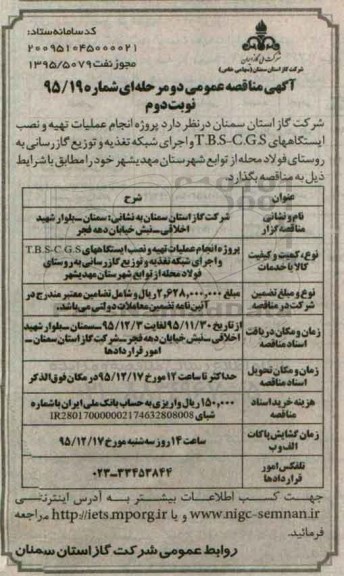 کد سامانه ستاد:
۲۰۰۹۵۱۰۴۵۰۰۰۰۰۲۱
مجوز نفت ۱۳۹۵/۵۰۷۹
شرکت ملی گاز ایران
شرکت گاز استان سمنان (سهامی خاص)
آگهی مناقصه عمومی دو مرحله‌ای شماره ۹۵/۱۹۰
نوبت دوم
شرکت گاز استان سمنان در نظر دارد پروژه انجام عملیات تهیه و نصب
ایستگاههای T.B.S-C.G.S و اجرای شبکه تغذیه و توزیع گازرسانی به
روستای فولاد محله از توابع شهرستان مهدیشهر خود را مطابق با شرایط
ذیل به مناقصه بگذارد.
عنوان
شرح
نام و نشانی مناقصه گزار
شرکت گاز استان سمنان به نشانی: سمنان - بلوار شهید
اخلاقی - نبش خیابان دهه فجر
نوع، کمیت و کیفیت کالا یا خدمات
پروژه انجام عملیات تهیه و نصب ایستگاههای T.B.S-C.G.S
و اجرای شبکه تغذیه و توزیع گازرسانی به روستای
فولاد محله از توابع شهرستان مهدیشهر
نوع و مبلغ تضمین شرکت در مناقصه
مبلغ ۲,۶۲۸,۰۰۰,۰۰۰ ریال و شامل تضامین معتبر مندرج در
آئین نامه تضمین معاملات دولتی می‌باشد.
زمان و مکان دریافت اسناد مناقصه
از تاریخ ۹۵/۱۱/۳۰ لغایت ۹۵/۱۲/۳ - سمنان - بلوار شهید
اخلاقی - نبش خیابان دهه فجر - شرکت گاز استان سمنان -
امور قراردادها
زمان و مکان تحویل اسناد مناقصه
حداکثر تا ساعت ۱۲ مورخ ۹۵/۱۲/۱۷ در مکان فوق الذکر
هزینه خرید اسناد مناقصه
۱۵۰,۰۰۰ ریال واریزی به حساب بانک ملی ایران با شماره
شبای IR280170000002174632808008
زمان گشایش پاکات الف و ب
ساعت ۱۴ روز سه شنبه مورخ ۹۵/۱۲/۱۷
تلفکس امور قراردادها
۰۲۳-۳۳۴۵۳۸۴۴
جهت کسب اطلاعات بیشتر به آدرس اینترنتی
www.nigc-semnan.ir و یا http://iets.mporg.ir مراجعه
فرمائید.
روابط عمومی شرکت گاز استان سمنان